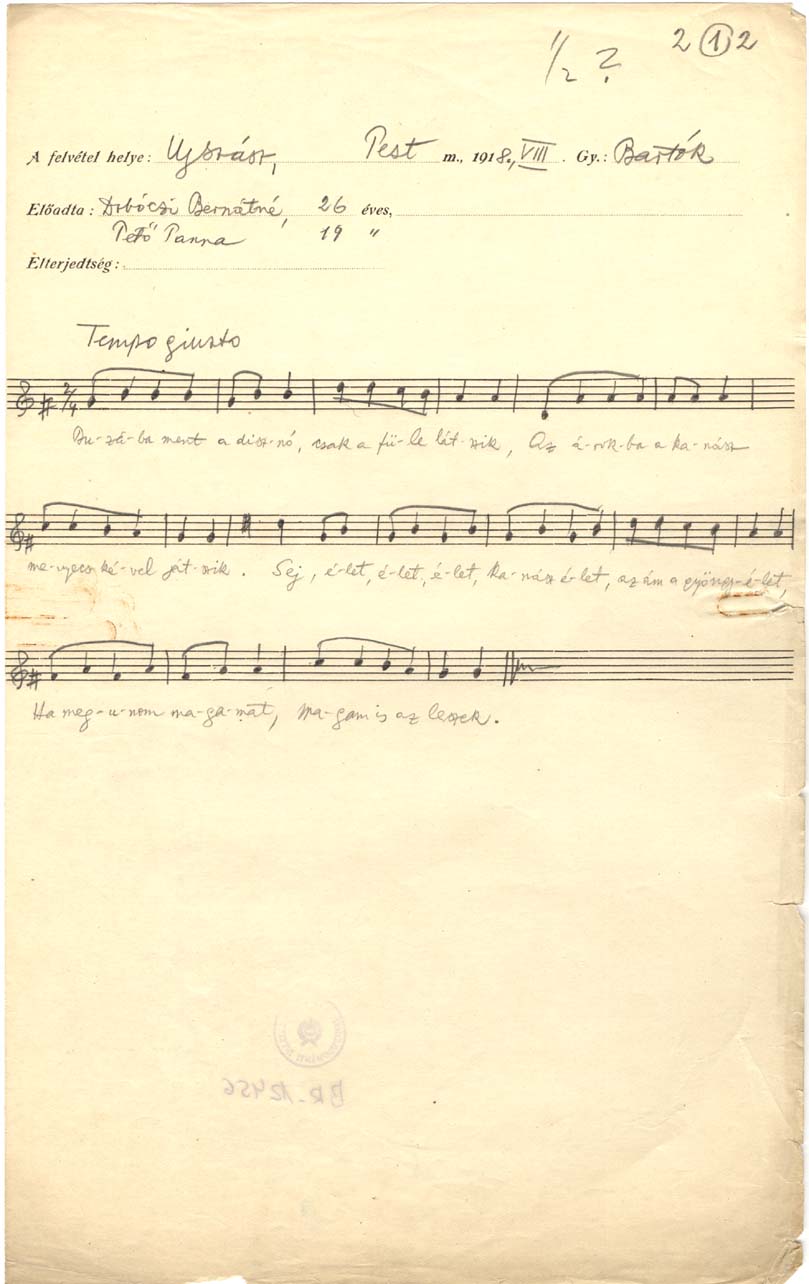 1/2 ?
2 1 2
A felvétel helye: Ujszász, Pest m., 1918., VIII. Gy.: Bartók
Előadta: Drbóczi Bernátné, 26 éves,
Pető Panna 19 "
Elterjedtség:
Tempo giusto
2/4
Bu-zá-ba ment a disz-nó, csak a fü-le lát-szik, Az á-rok-ba a ka-nász
me-nyecs-ké-vel ját-szik. Sej, é-let, é-let, é-let, ka-nász é-let, az ám a gyöngy-é-let,
Ha meg-u-nom ma-ga-mat, ma-gam is az leszek.
BR-12456